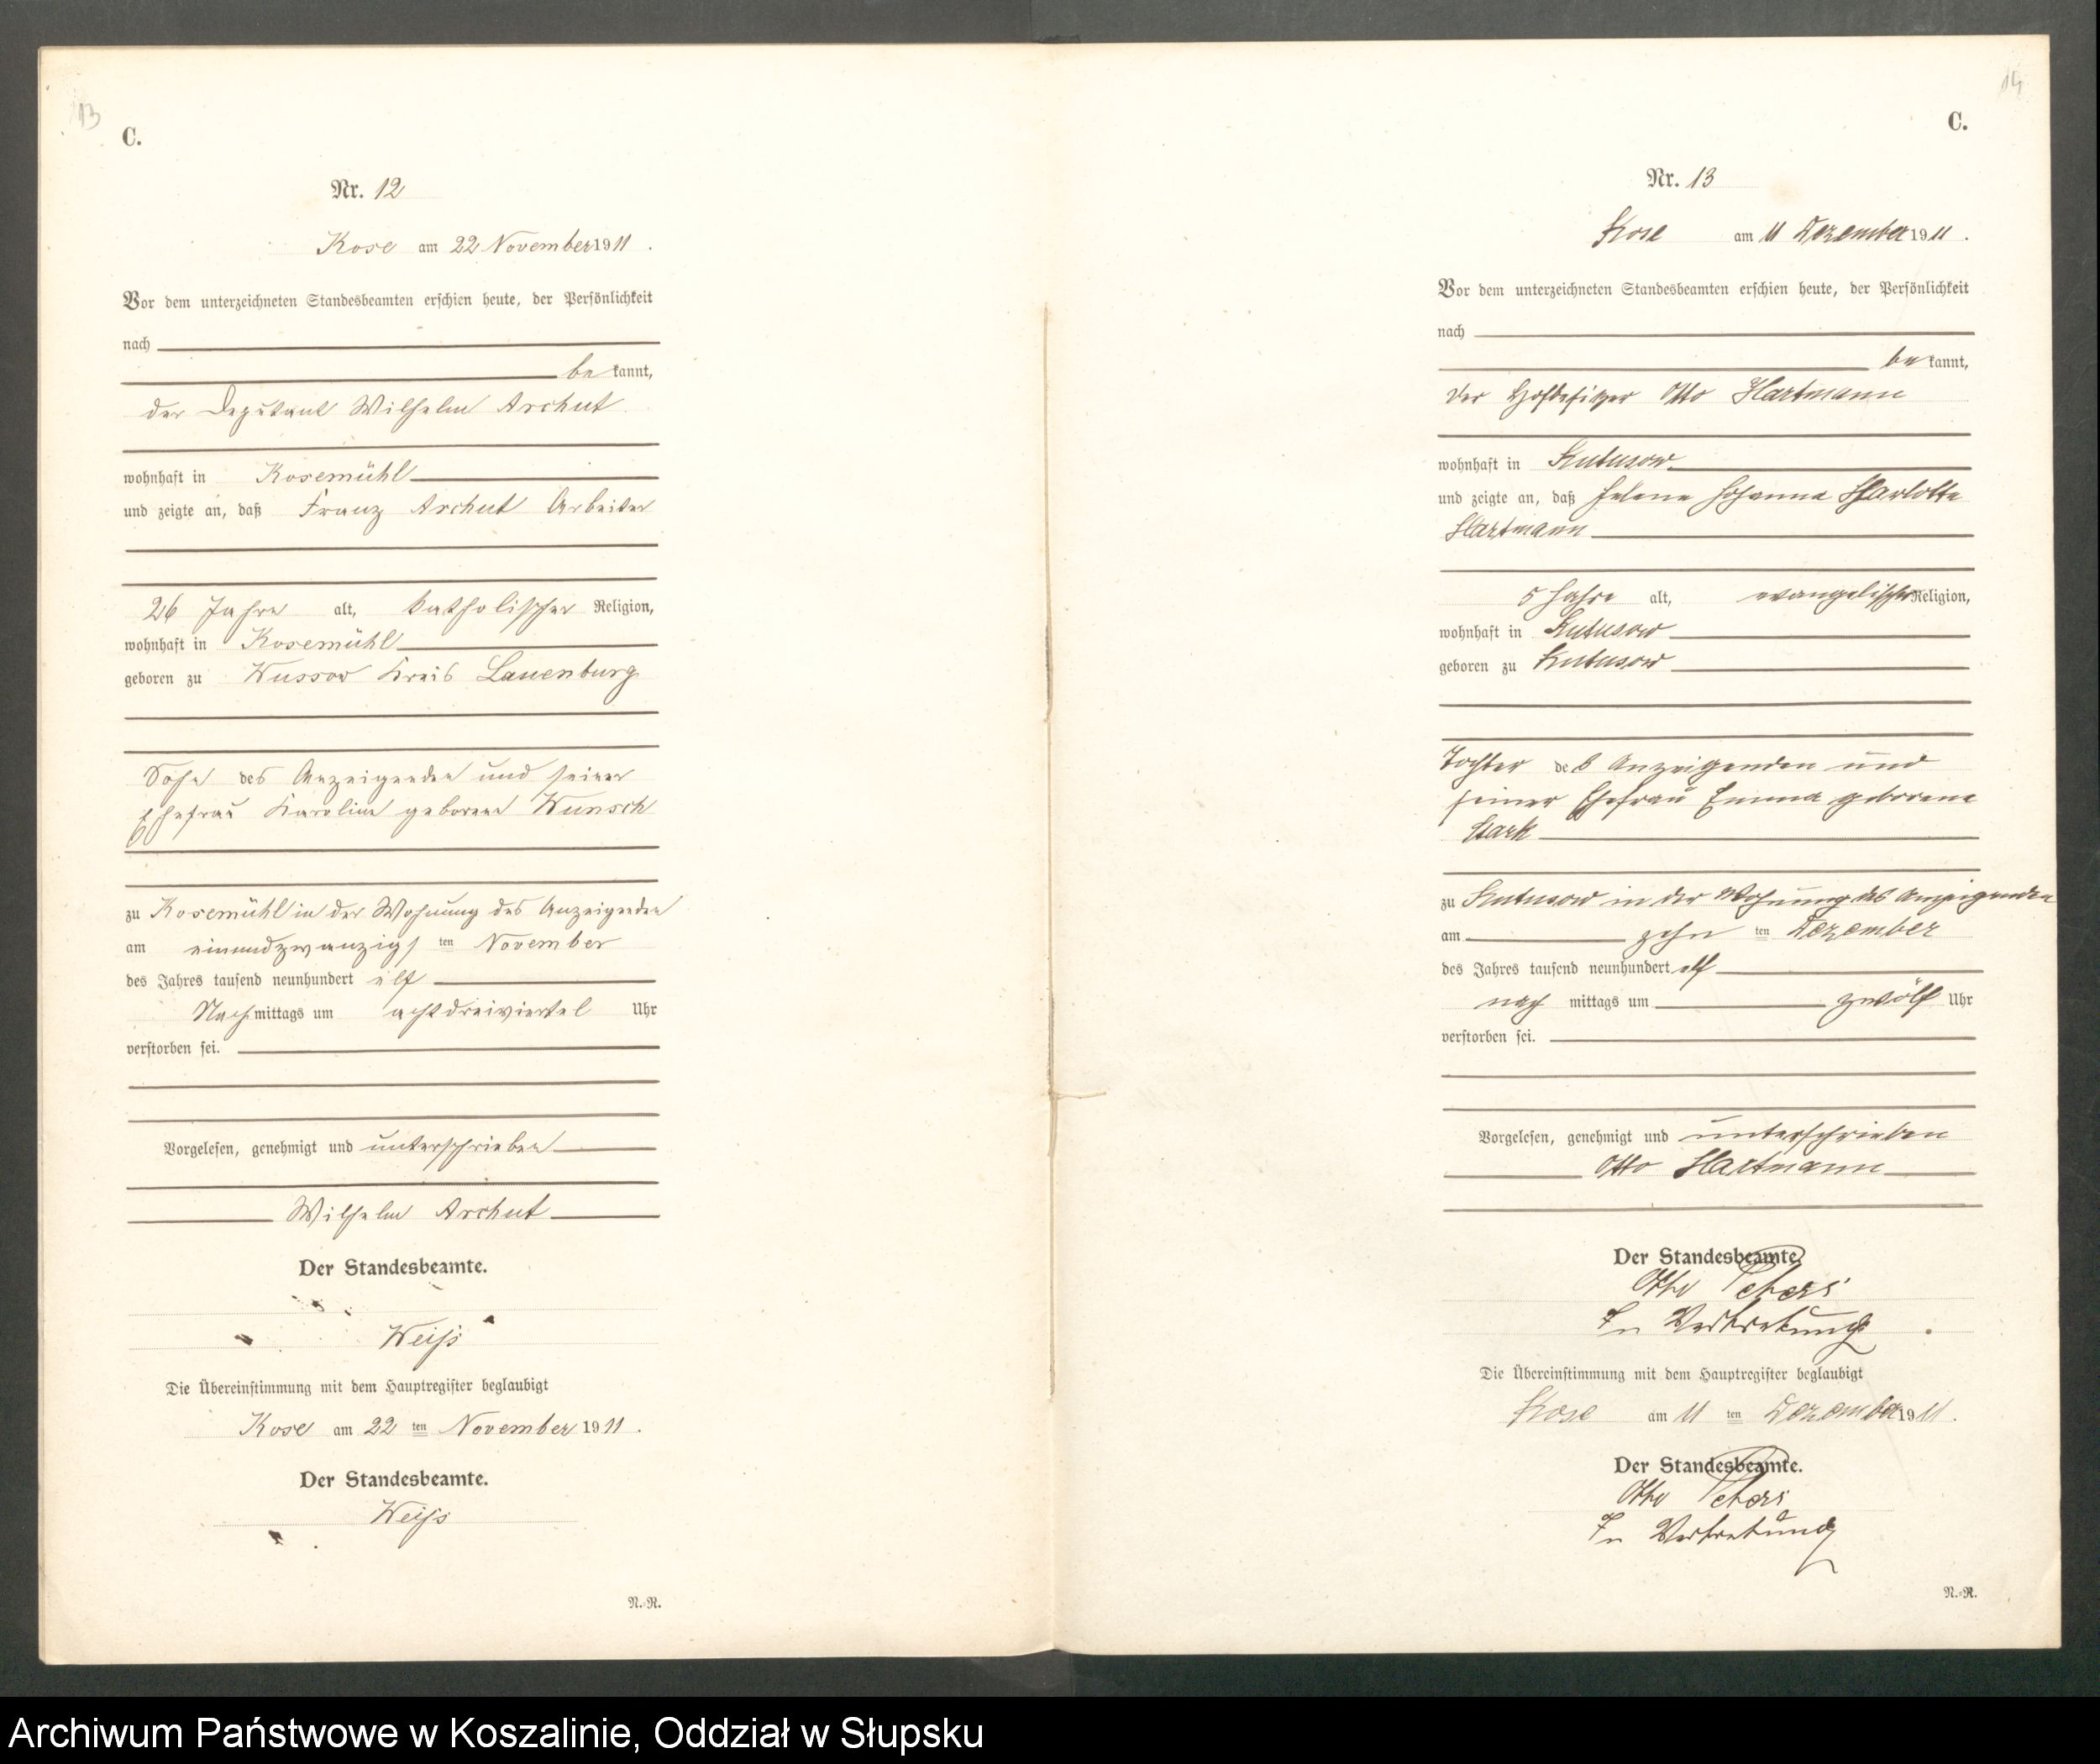 13
C.
Nr. 12
Kose am 22 November 1911.
Vor dem unterzeichneten Standesbeamten erschien heute, der Persönlichkeit
nach
be kannt,
der Deputant Wilhelm Archut
wohnhaft in Kosemühl
und zeigte an, daß Franz Archut Arbeiter
26 Jahre alt, katholischer Religion,
wohnhaft in Kosemühl
geboren zu Wussow Kreis Lauenburg
Sohn des Anzeigenden und seiner
Ehefrau Karoline geborene Wunsch
zu Kosemühl in der Wohnung des Anzeigenden
am einundzwanzigs ten November
des Jahres tausend neunhundert elf
Nach mittags um achtdreiviertel Uhr
verstorben sei.
Vorgelesen, genehmigt und unterschrieben
Wilhelm Archut
Der Standesbeamte.
Weiss
Die Übereinstimmung mit dem Hauptregister beglaubigt
Kose am 22 ten November 1911.
Der Standesbeamte.
Weiss
N.-R.
14
C.
Nr. 13
Kose am 11 Dezember 1911.
Vor dem unterzeichneten Standesbeamten erschien heute, der Persönlichkeit
nach
be kannt,
der Hofbesitzer Otto Hartmann
wohnhaft in Kutusow
und zeigte an, daß Helene Johanna Charlotte
Hartmann
5 Jahre alt, evangelischer Religion,
wohnhaft in Kutusow
geboren zu Kutusow
Tochter des Anzeigenden und
seiner Ehefrau Emma geborene
Stark
zu Kutusow in der Wohnung des Anzeigenden
am zehn ten Dezember
des Jahres tausend neunhundert elf
nach mittags um zwölf Uhr
verstorben sei.
Vorgelesen, genehmigt und unterschrieben
Otto Hartmann
Der Standesbeamte.
Otto Peters
In Vertretung
Die Übereinstimmung mit dem Hauptregister beglaubigt
Kose am 11 ten Dezember 1911.
Der Standesbeamte.
Otto Peters
In Vertretung
N.-R.
Archiwum Państwowe w Koszalinie, Oddział w Słupsku